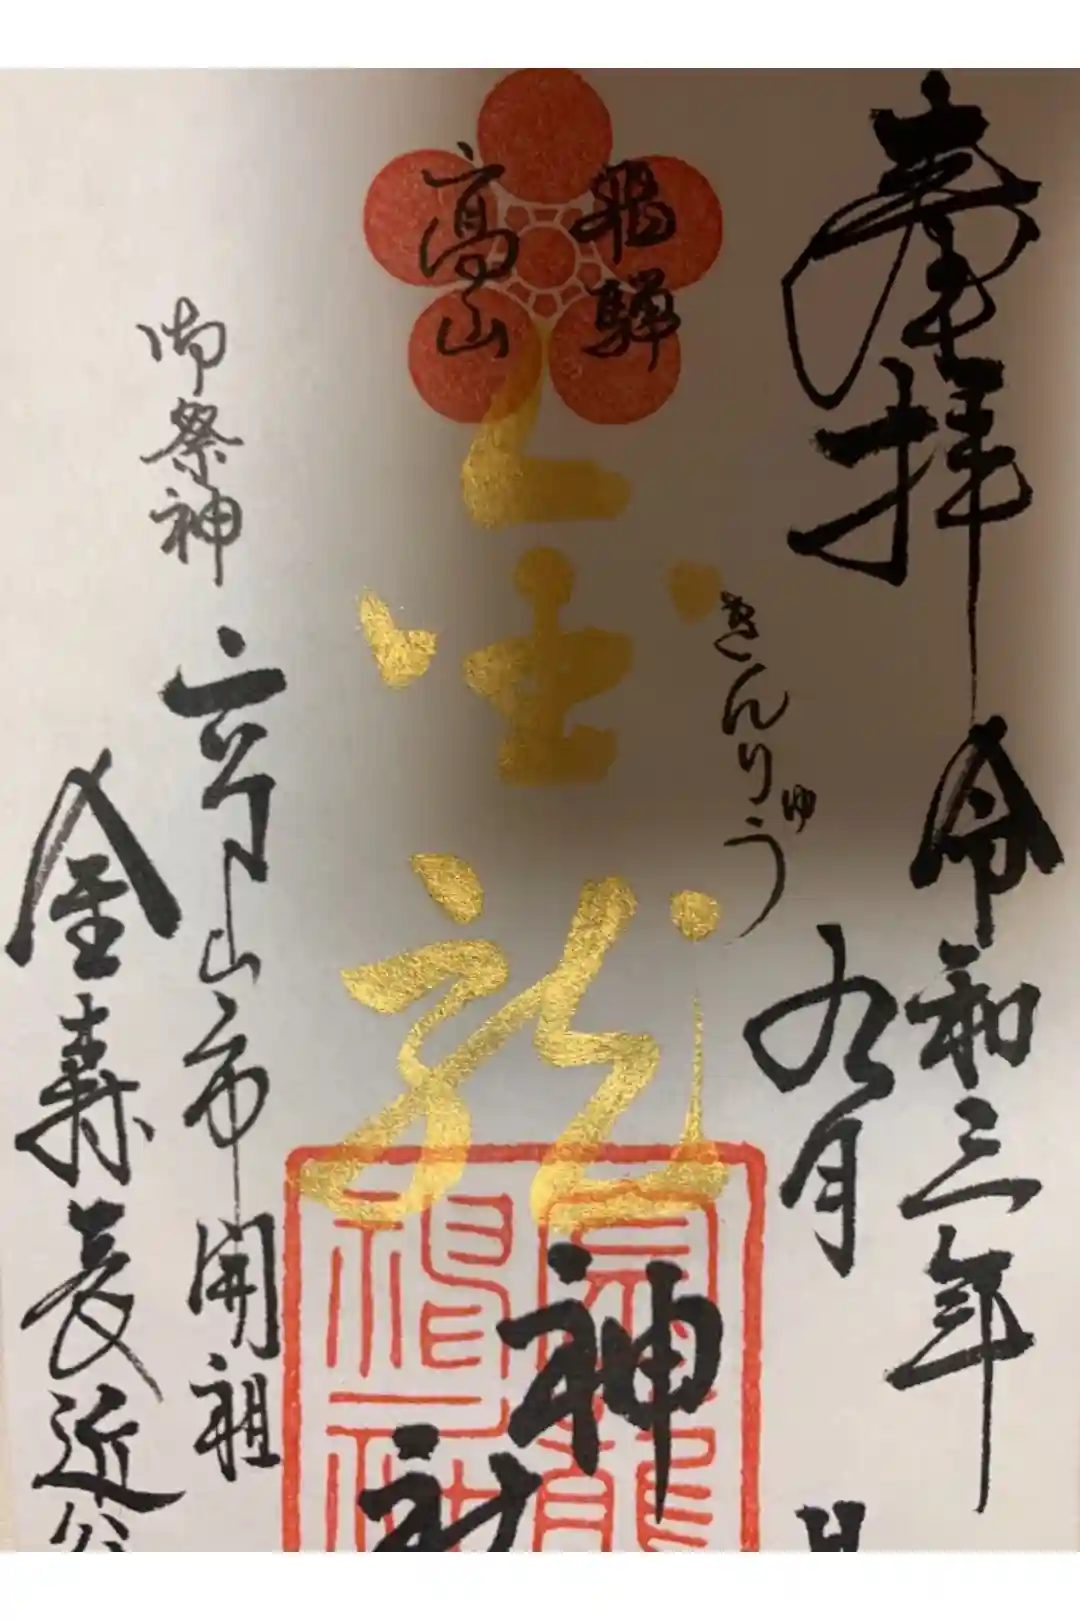 奉拝
令和三年
九月
日
飛騨
高山
きんりゅう
金龍
神社
御祭神
高山市開祖
金森長近公